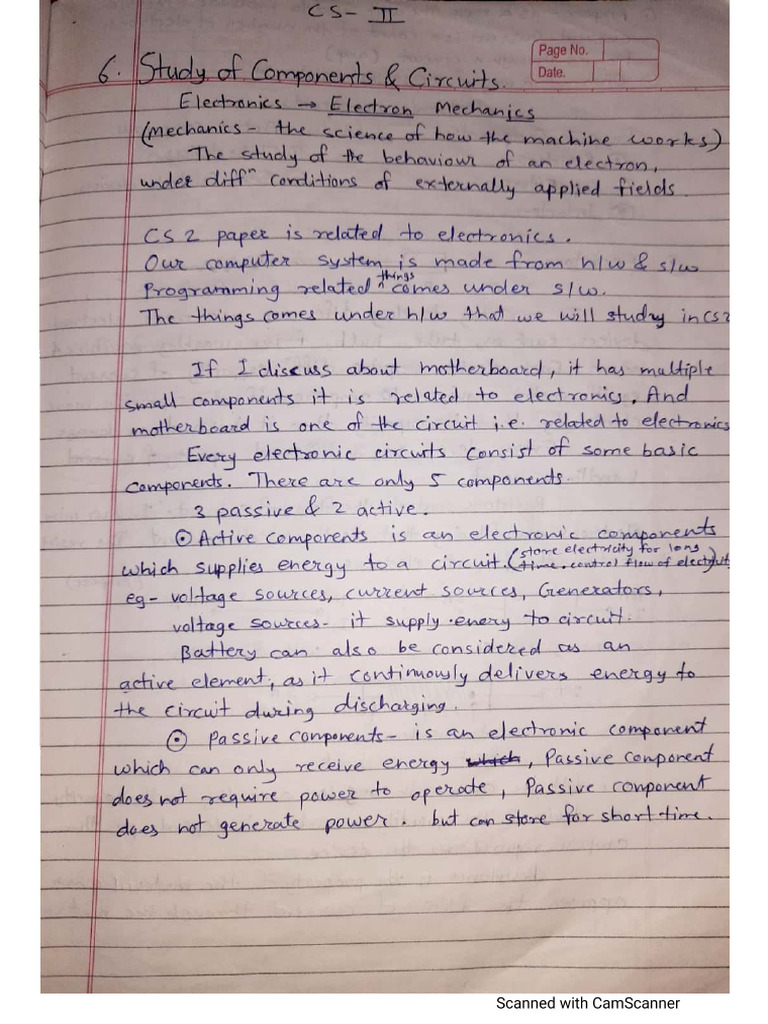 CS-II
Page No.
Date.
6. Study of Components & Circuits.
Electronics → Electron Mechanics
(Mechanics - the science of how the machine works)
The study of the behaviour of an electron,
under diffⁿ conditions of externally applied fields
CS 2 paper is related to electronics.
Our computer system is made from h/w & s/w
Programming related things comes under s/w.
The things comes under h/w that we will study in CS2
If I discuss about motherboard, it has multiple
small components it is related to electronics. And
motherboard is one of the circuit i.e. related to electronics
Every electronic circuits consist of some basic
components. There are only 5 components.
3 passive & 2 active.
⊙ Active components is an electronic components
which supplies energy to a circuit. (store electricity for long
time. control flow of elect)
eg - voltage sources, current sources, Generators,
voltage sources - it supply enery to circuit.
Battery can also be considered as an
active element, as it continuously delivers energy to
the circuit during discharging.
⊙ Passive components - is an electronic component
which can only receive energy which, Passive component
does not require power to operate, Passive component
does not generate power. but can store for short time.
Scanned with CamScanner